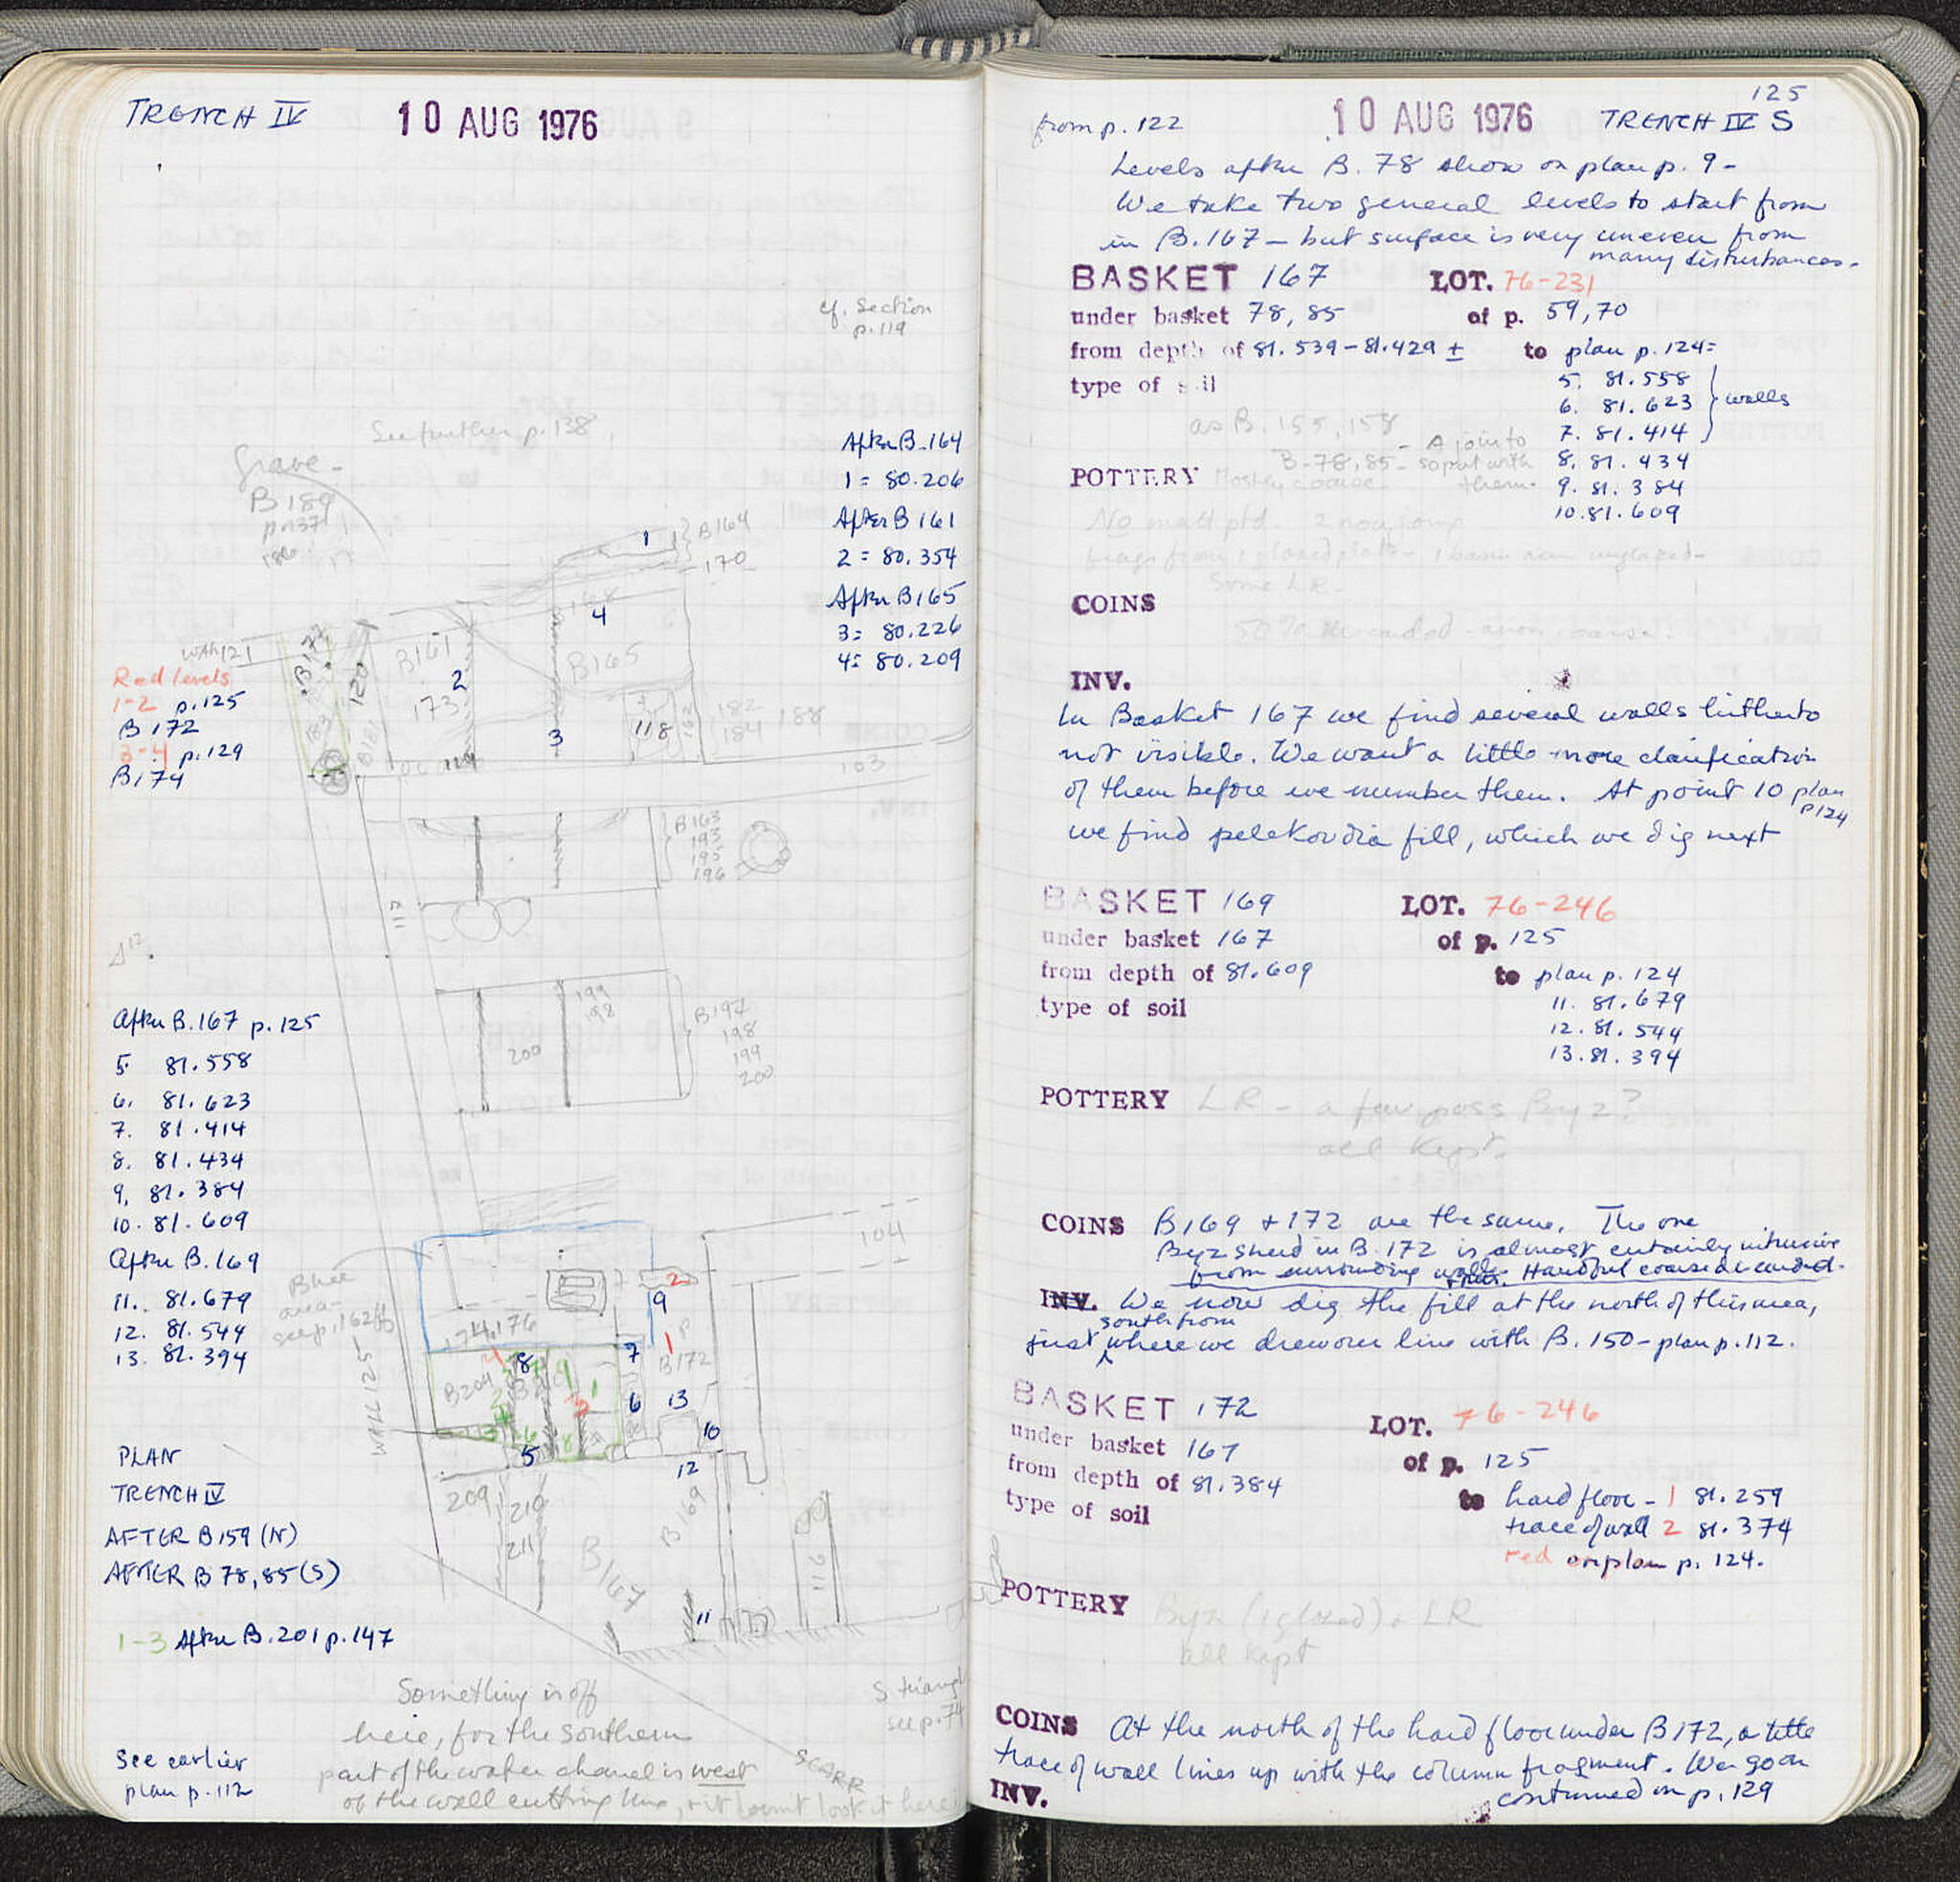 TRENCH IV
10 AUG 1976
cf. section
p. 119
See further p. 138
Grave -
B 189
p. 137
After B. 164
1 = 80.206
After B 161
2 = 80.354
After B 165
3 = 80.226
4 = 80.209
1
B 164
170
4
B 161
2
173
B 165
3
118
182
184
188
103
B 177
120
183
B 181
Red levels
1-2 p. 125
B 172
3-4 p. 129
B 174
B 163
193
195
196
117
199
198
200
B 197
198
199
200
After B. 167 p. 125
5. 81.558
6. 81.623
7. 81.414
8. 81.434
9. 81.384
10. 81.609
After B. 169
11. 81.679
12. 81.544
13. 81.394
Blue
area -
see p. 162 ff
WALL 125
104
2
9
1
174, 176
B 172
7
8
B 204
6
13
10
5
12
209
210
211
B 169
B 167
11
211
PLAN
TRENCH IV
AFTER B 159 (N)
AFTER B 78, 85 (S)
1-3 After B. 201 p. 147
Something is off
here, for the southern
part of the water chanel is west
of the wall cutting line, + it doesn't look it here
S triangl
see p. 74
SCARP
See earlier
plan p. 112
125
from p. 122
10 AUG 1976
TRENCH IV S
Levels after B. 78 show on plan p. 9 -
We take two general levels to start from
in B. 167 - but surface is very uneven from
many disturbances -
BASKET 167 LOT. 76-231
under basket 78, 85 of p. 59, 70
from depth of 81.539 - 81.429 ± to plan p. 124 =
type of soil
5. 81.558
6. 81.623 } walls
7. 81.414
8. 81.434
9. 81.384
10. 81.609
as B. 155, 158
- A join to
B. 78, 85 - so put with
them.
POTTERY Mostly coarse -
No matt ptd. 2 nonjoin
frags from 1 glazed plate - 1 basin rim unglazed -
Some LR
COINS
50% discarded - many coarse
INV.
In Basket 167 we find several walls hitherto
not visible. We want a little more clarification
of them before we number them. At point 10 plan
p 124
we find pelekoudia fill, which we dig next
BASKET 169 LOT. 76-246
under basket 167 of p. 125
from depth of 81.609 to plan p. 124
type of soil
11. 81.679
12. 81.544
13. 81.394
POTTERY LR - a few poss Byz?
all kept
COINS B 169 + 172 are the same. The one
Byz sherd in B. 172 is almost certainly intrusive
from surrounding walls. Handful coarse discarded.
INV. We now dig the fill at the north of this area,
just south from where we drew our line with B. 150 - plan p. 112.
BASKET 172 LOT. 76-246
under basket 167 of p. 125
from depth of 81.384 to hard floor - 1 81.259
type of soil
trace of wall 2 81.374
red on plan p. 124.
POTTERY Byz (1 glazed) + LR
all kept
COINS At the north of the hard floor under B 172, a little
trace of wall lines up with the column fragment. We go on
INV. continued on p. 129